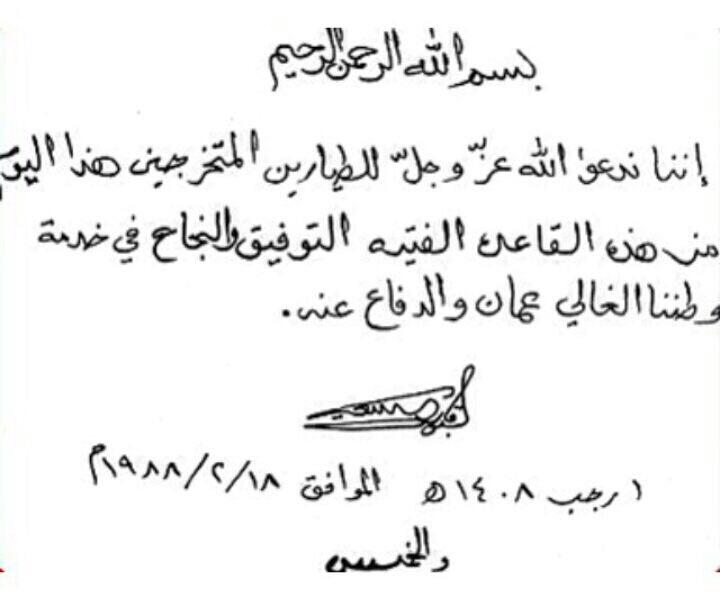 بسم الله الرحمن الرحيم
إننا ندعو الله عزّ وجلّ للطيارين المتخرجين هذا اليوم
من هذه القاعده الفتيه التوفيق والنجاح في خدمة
وطننا الغالي عمان والدفاع عنه.
١ رجب ١٤٠٨ هـ الموافق ١٨/٢/١٩٨٨م
والخميس